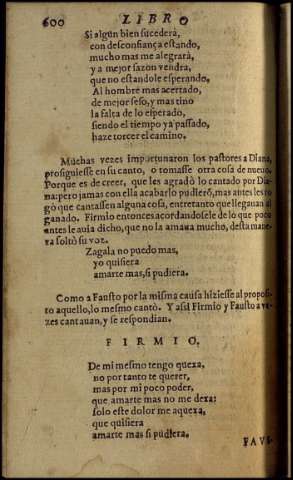 600 LIBRO
Si algun bien sucederà,
con desconfiança estando,
mucho mas me alegrarà,
y a mejor sazon vendra,
que no estandole esperando.
Al hombre mas acertado,
de mejor seso, y mas tino
la falta de lo esperado,
siendo el tiempo ya passado,
haze torcer el camino.
Muchas vezes importunaron los pastores a Diana
prosiguiesse en su canto, o tomasse otra cosa de nueuo.
Porque es de creer, que les agradò lo cantado por Dia-
na: pero jamas con ella acabarlo pudierõ, mas antes les ro
gò que cantassen alguna cosa, entretanto que llegauan al
ganado. Firmio entonces acordandosele de lo que poco
antes le auia dicho, que no la amaua mucho, desta mane
ra soltò su voz.
Zagala no puedo mas,
yo quisiera
amarte mas, si pudiera.
Como a Fausto por la misma causa hiziesse al proposi
to aquello, lo mesmo cantò. Y assi Firmio y Fausto a ve
zes cantauan, y se respondian.
FIRMIO.
De mi mesmo tengo quexa,
no por tanto te querer,
mas por mi poco poder,
que amarte mas no me dexa:
solo este dolor me aquexa,
que quisiera
amarte mas si pudiera.
FAVS-